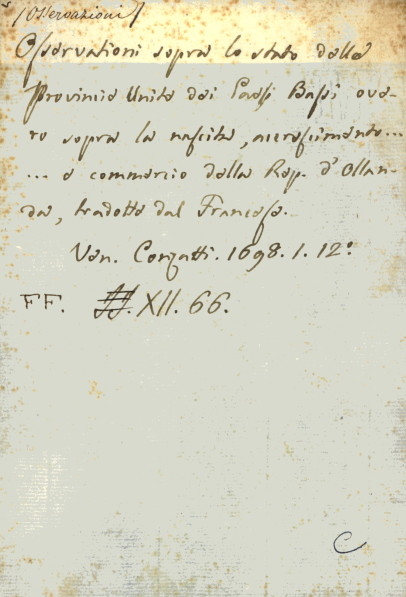 [Osservazioni]
Osservationi sopra lo stato delle
Provincie Unite dei Paesi Bassi ove-
ro sopra la nascita, accrescimento...
... e commercio della Rep. d'Ollan-
da, tradotte dal Francese.
Ven. Conzatti. 1698. 1. 12°
FF. XII. 66.
C